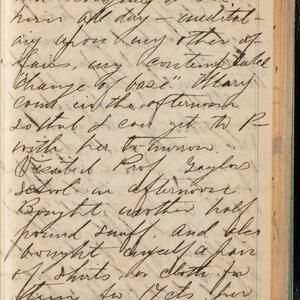 here all day - meditat-
ing upon my other af-
fairs, my contemplated
change of base" Mary
come in the afternoon
so that I can get to P-
with her tomorrow.
Visited Prof Taylors
school in afternoon
Bought another half
pound snuff. And also
bought myself a pair
of shirts, or cloth for
them for 17 cts per